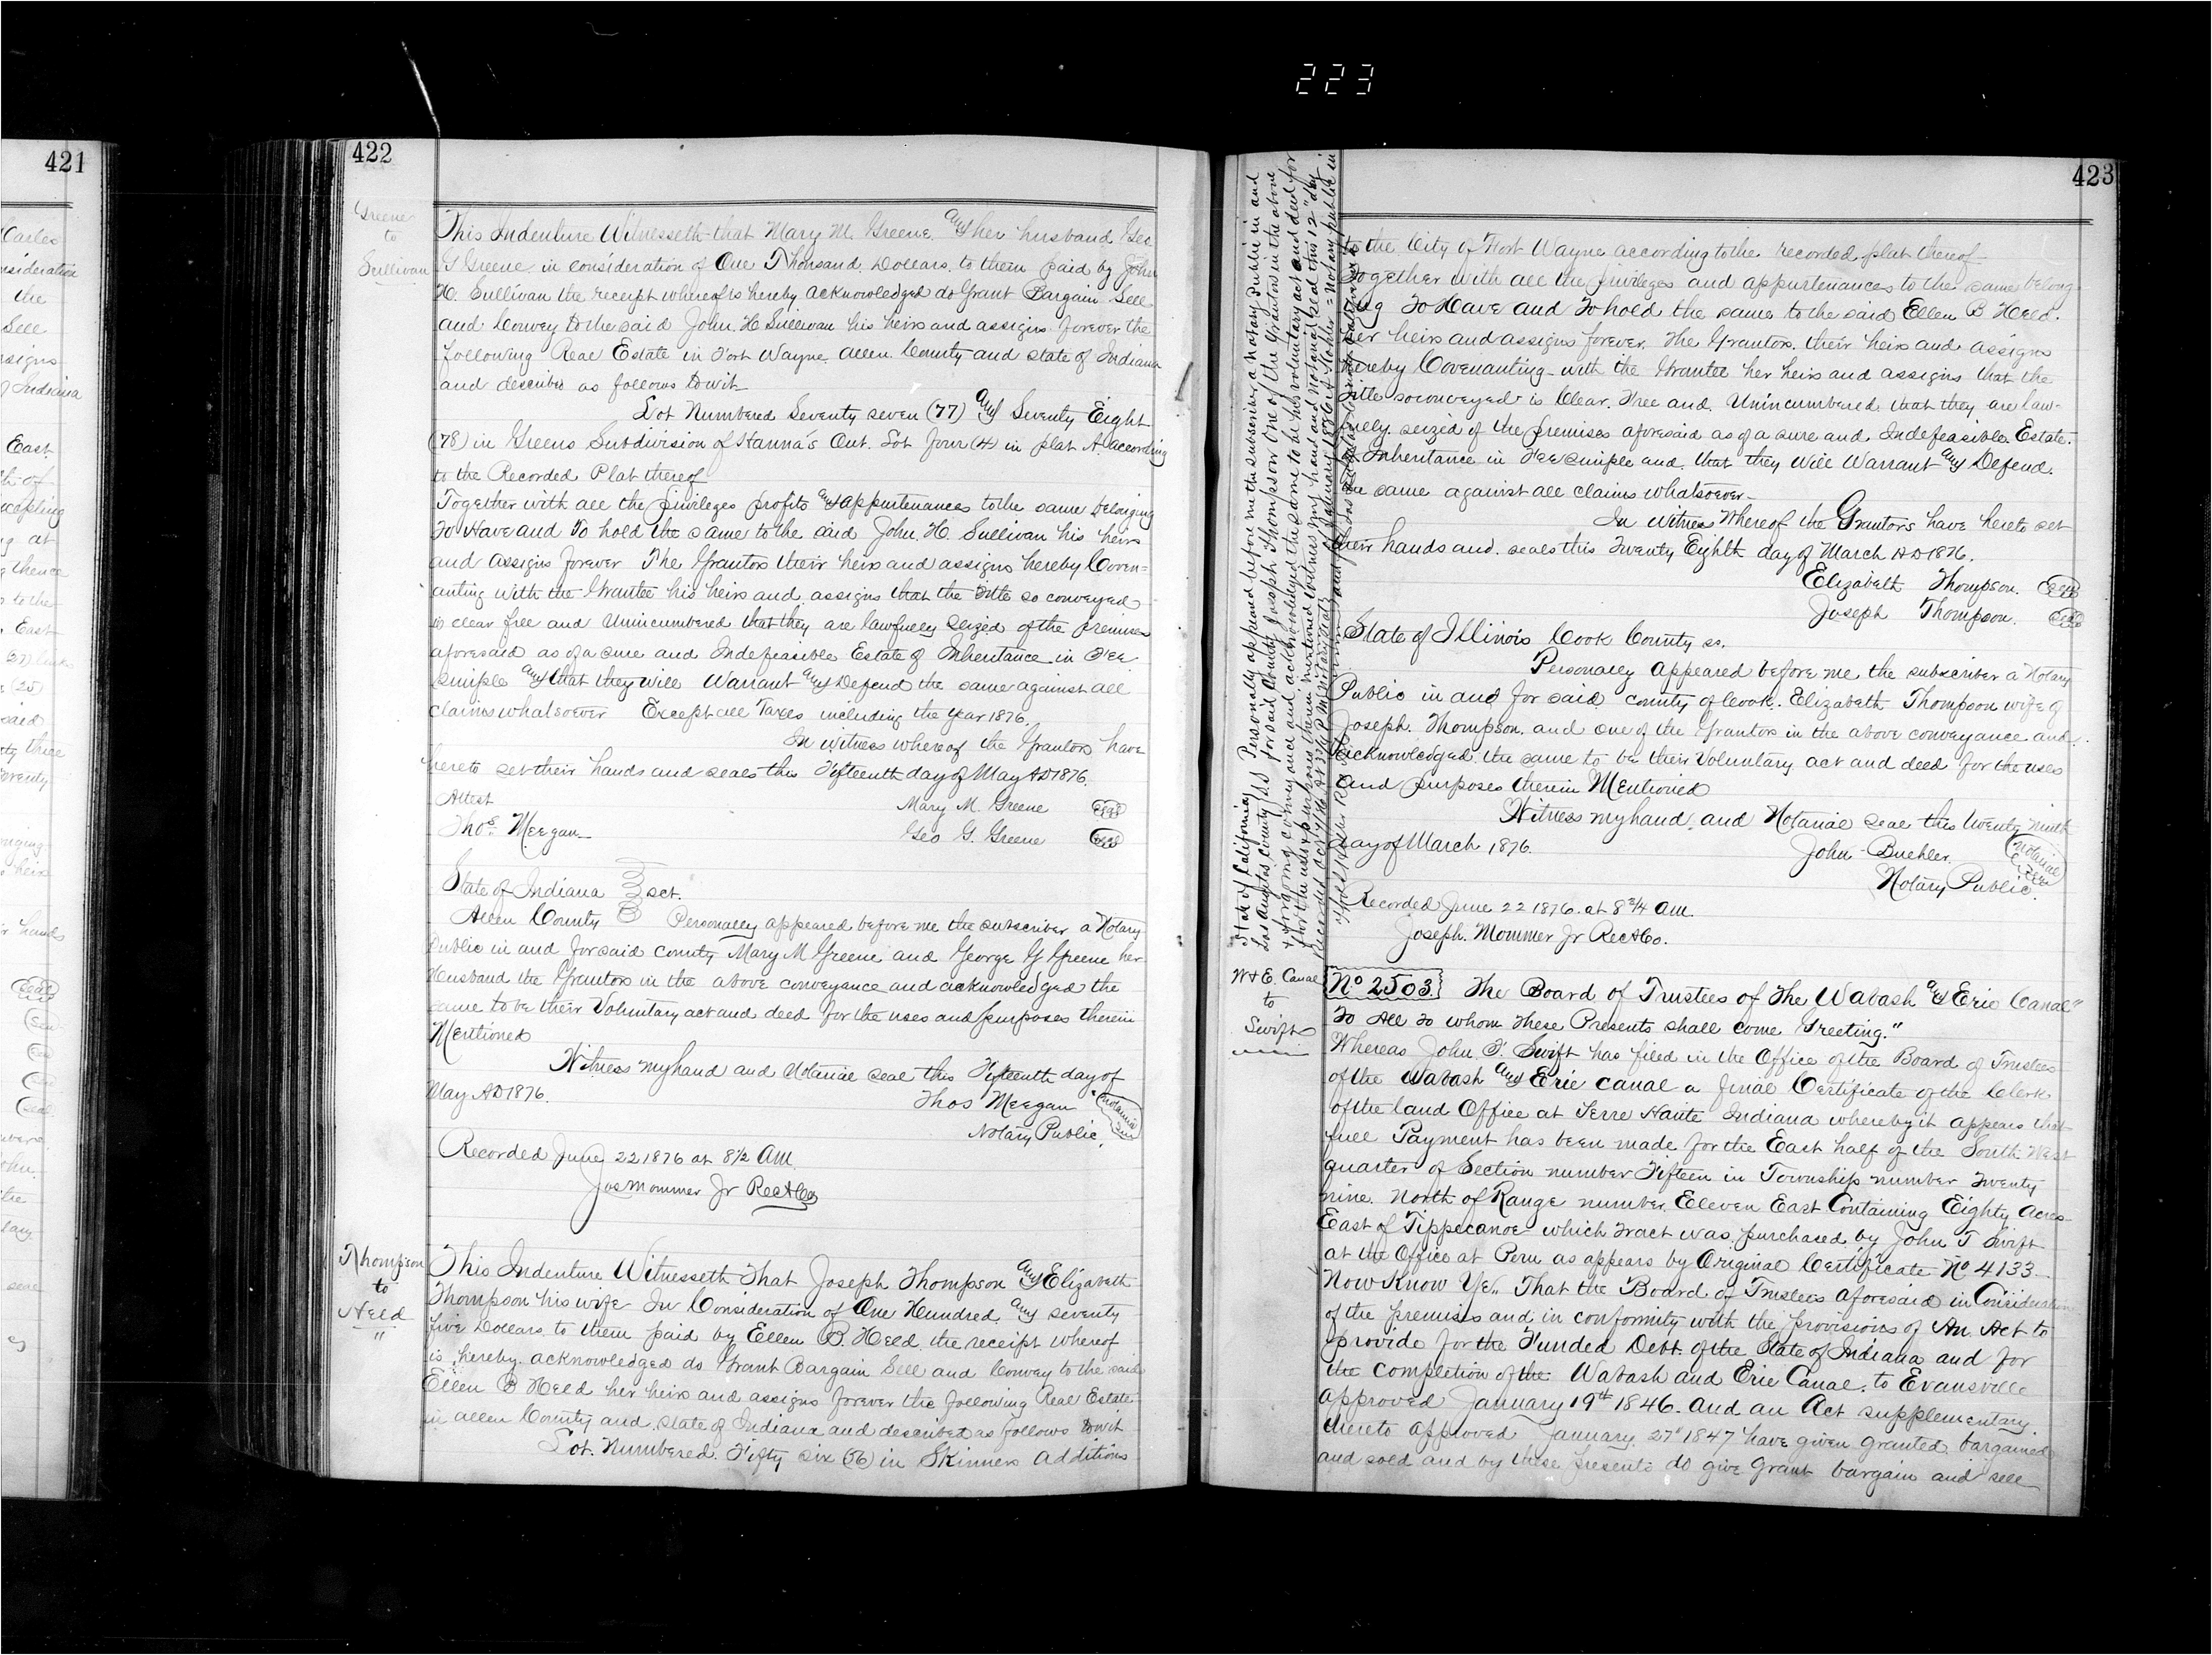 223
421
Carles
nsideration
the
Sell
ssigns
of Indiana
East
th of
at
thence
to the
East
(25)
said
three
hands
Seal
John
422
Greene
to
Sullivan
This Indenture Witnesseth that Mary M. Greene. and her husband Geo
G Greene in consideration of One Thousand. Dollars. to them paid by John
H. Sullivan the receipt whereof is hereby acknowledged do Grant Bargain Sell
and Convey to the said John. H Sullivan his heirs and assigns forever the
following Real Estate in Fort Wayne. Allen County and state of Indiana
and described as follows to wit
Lot Numbered Seventy seven (77) and Seventy Eight
(78) in Greens Subdivision of Hanna's Out. Lot Four (4) in plat A. according
to the Recorded Plat thereof
Together with all the privileges profits and appurtenances to the same belonging
To Have and To hold the same to the said John. H. Sullivan his heirs
and assigns forever The Grantors their heirs and assigns hereby Coven=
anting with the Grantee his heirs and assigns that the Title so conveyed
is clear free and Unincumbered that they are lawfully Seized of the premises
aforesaid as of a sure and Indefeasible Estate of Inheritance in Fee
Simple and that they will Warrant and Defend the same against all
claims whatsoever Except all Taxes including the year 1876.
In witness whereof the Grantors have
hereto set their hands and seals this Fifteenth day of May AD 1876.
Attest
Mary M. Greene Seal
Thos. Meegan
Geo G. Greene Seal
State of Indiana } sct.
Allen County Personally appeared before me the subscriber a Notary
Public in and for said county Mary M Greene and George G Greene her
Husband the Grantors in the above conveyance and acknowledged the
same to be their Voluntary act and deed for the uses and purposes therein
Mentioned
Witness my hand and Notarial seal this Fifteenth day of
May AD 1876.
Thos Meegan Notarial Seal
Notary Public.
Recorded June 22 1876 at 8 1/2 AM
Jos Mommer Jr RecACo
Thompson
to
Held
"
This Indenture Witnesseth That Joseph Thompson and Elizabeth
Thompson his wife In Consideration of One Hundred. and seventy
five Dollars. to them paid by Ellen B. Held. the receipt whereof
is hereby. acknowledged do Grant Bargain Sell and Convey to the said
Ellen B Held her heirs and assigns forever the following Real Estate
in Allen County and State of Indiana and described as follows to wit
Lot. Numbered. Fifty six (56) in Skinners additions
423
to the City of Fort Wayne according to the recorded plat thereof
Together with all the privileges and appurtenances to the same belong
ing To Have and To hold the same to the said Ellen B Held.
her heirs and assigns forever. The Grantors. their heirs and assigns
hereby Covenanting with the Grantee her heirs and assigns that the
title so conveyed is Clear. Free and. Unincumbered. that they are law-
fully seized of the premises aforesaid as of a sure and Indefeasible Estate.
of Inheritance in Fee Simple and. that they will Warrant and Defend.
the same against all claims whatsoever
In witness Whereof the Grantors have hereto set
their hands and. seals this Twenty Eighth day of March AD 1876.
Elizabeth Thompson. Seal
Joseph Thompson. Seal
State of Illinois Cook County ss.
Personally appeared before me the subscriber a Notary
Public in and for said county of Cook. Elizabeth Thompson wife of
Joseph. Thompson. and one of the Grantors in the above conveyance and
acknowledged the same to be their Voluntary act and deed for the uses
and purposes therein Mentioned
Witness my hand and Notarial seal this twenty ninth
day of March 1876.
John Buehler. Notarial Seal
Notary Public.
Recorded June 22 1876. at 8 3/4 AM.
Joseph. Mommer Jr RecACo.
State of California
Los Angeles County } ss Personally appeared before me the subscriber, a Notary Public in and
for said county, Joseph Thompson One of the Grantors in the above
& forgoing conveyance and acknowledged the same to be his voluntary act and deed for
for the uses & purposes therein mentioned Witness my hand and notarial seal this 12" day
of January 1886
Notary public in
W & E. Canal
to
Swift
No 2503. The Board of Trustees of The Wabash and Erie Canal"
To All To whom These Presents shall come Greeting."
Whereas John. T. Swift has filed in the Office of the Board of Trustees
of the Wabash and Erie Canal a final Certificate of the Clerk
of the land Office at Terre Haute Indiana whereby it appears that
full Payment has been made for the East half of the South West
quarter of Section number Fifteen in Township number Twenty
nine. North of Range number. Eleven East Containing Eighty Acres
East of Tippecanoe which tract was purchased by John T Swift
at the Office at Peru as appears by Original Certificate No 4133
Now Know Ye,, That the Board of Trustees aforesaid in Consideration
of the premises and in conformity with the provisions of An. Act to
provide for the Funded Debt. of the State of Indiana and for
the completion of the Wabash and Erie Canal. to Evansville
approved January 19th 1846. and an Act supplementary
thereto approved January 27" 1847 have given granted. bargained
and sold and by these presents do give grant bargain and sell